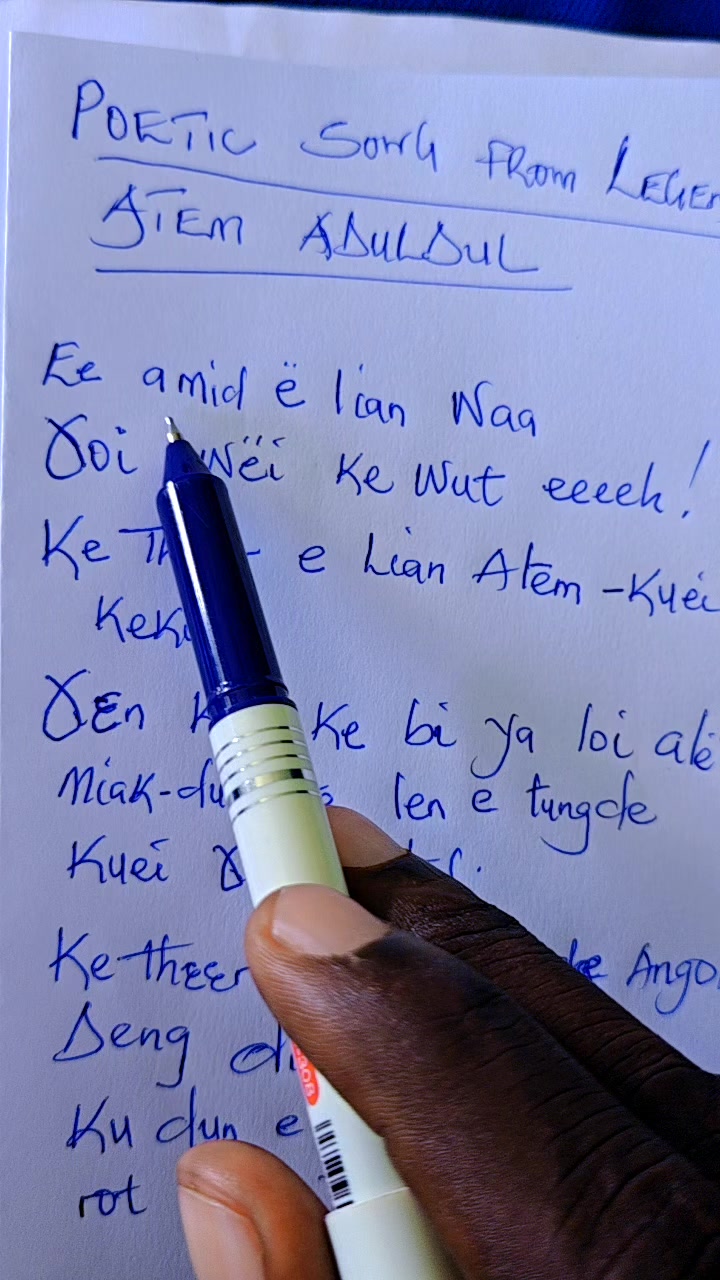 POETIC SONG FROM LEGEN
ATEM ADULDUL
Ee amid ë lian Waa
Ɣoi Wëï Ke Wut eeeeh!
Ke e Lian Atëm - Kuëi
Ɣɛn Ke bi ya loi alë
Miak-du len e tungde
Kuëi
Ke theer Ango
Deng
Ku dun e
rot